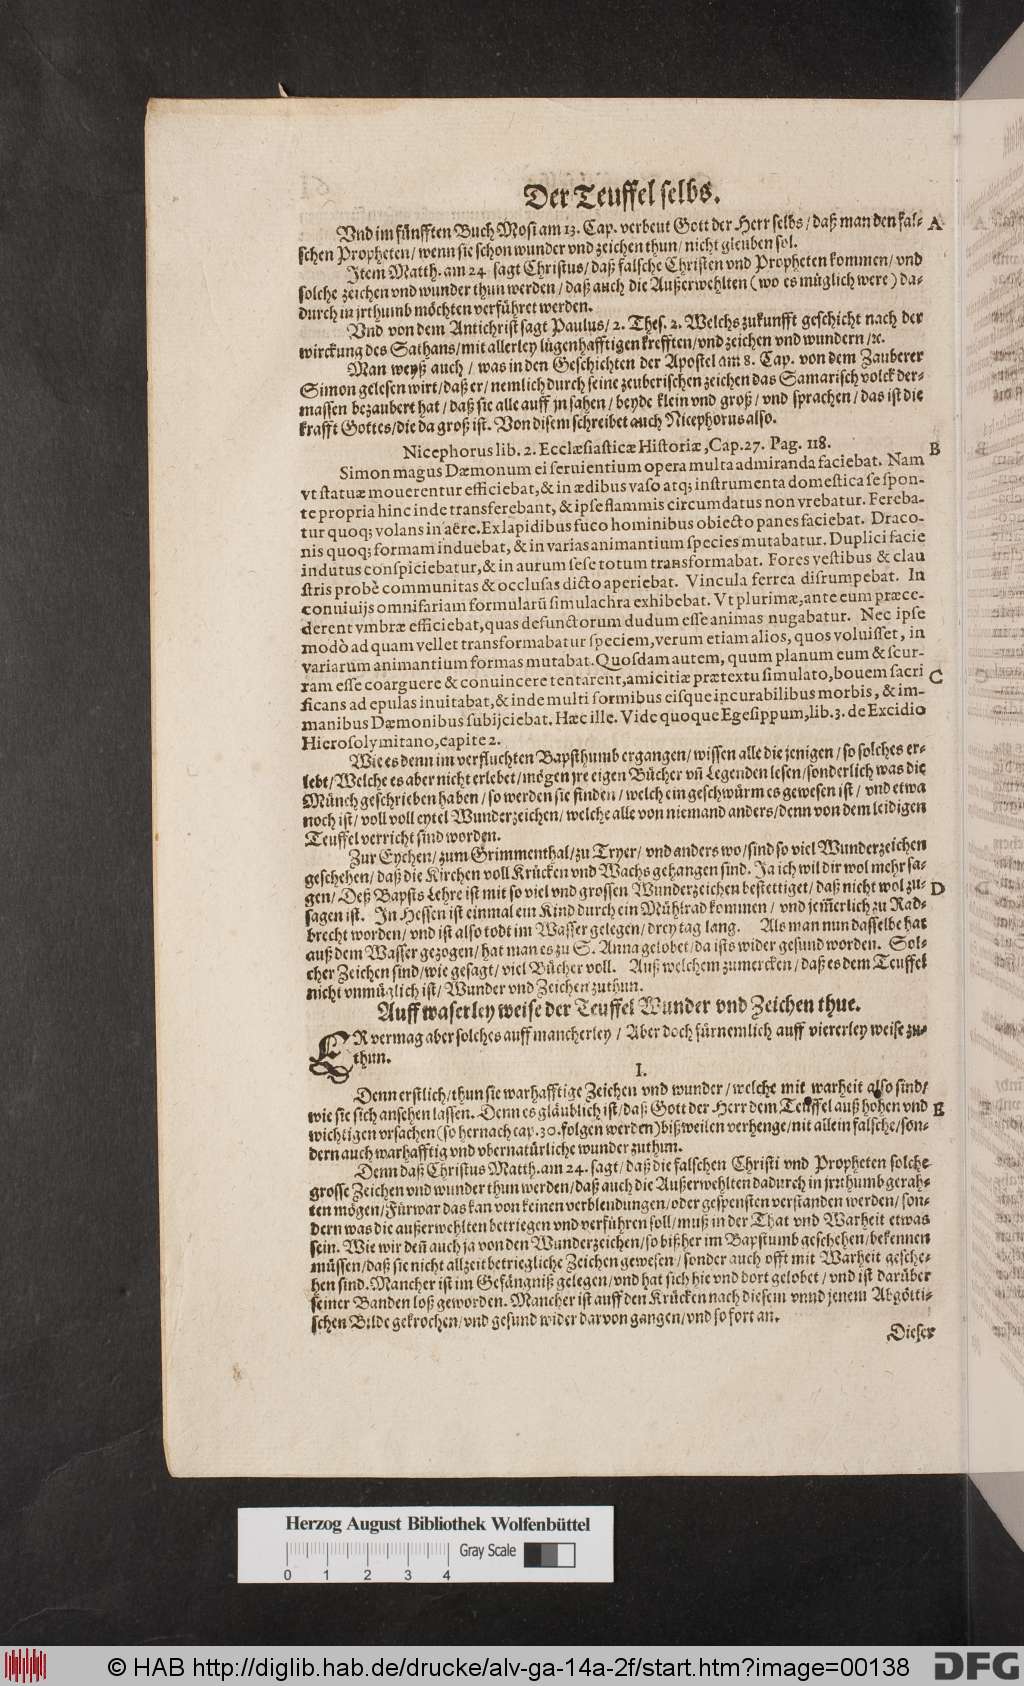 Der Teuffel selbs.
Vnd im fünfften Buch Mosi am 13. Cap. verbeut Gott der Herr selbs / daß man den fal- A
schen Propheten / wenn sie schon wunder vnd zeichen thun / nicht gleuben sol.
Item Matth. am 24 sagt Christus / daß falsche Christen vnd Propheten kommen / vnd
solche zeichen vnd wunder thun werden / daß auch die Außerwehlten (wo es müglich were) da-
durch in jrthumb möchten verführet werden.
Vnd von dem Antichrist sagt Paulus / 2. Thes. 2. Welchs zukunfft geschicht nach der
wirckung des Sathans / mit allerley lügenhafftigen krefften / vnd zeichen vnd wundern / ꝛc.
Man weyß auch / was in den Geschichten der Apostel am 8. Cap. von dem Zauberer
Simon gelesen wirt / daß er / nemlich durch seine zeuberischen zeichen das Samarisch volck der-
massen bezaubert hat / daß sie alle auff jn sahen / beyde klein vnd groß / vnd sprachen / das ist die
krafft Gottes / die da groß ist. Von disem schreibet auch Nicephorus also.
Nicephorus lib. 2. Ecclæsiasticæ Historiæ, Cap. 27. Pag. 118. B
Simon magus Dæmonum ei seruientium opera multa admiranda faciebat. Nam
vt statuæ mouerentur efficiebat, & in ædibus vaso atq; instrumenta domestica se spon-
te propria hinc inde transferebant, & ipse flammis circumdatus non vrebatur. Fereba-
tur quoq; volans in aëre. Ex lapidibus fuco hominibus obiecto panes faciebat. Draco-
nis quoq; formam induebat, & in varias animantium species mutabatur. Duplici facie
indutus conspiciebatur, & in aurum sese totum transformabat. Fores vestibus & clau
stris probè communitas & occlusas dicto aperiebat. Vincula ferrea disrumpebat. In
conuiuijs omnifariam formularũ simulachra exhibebat. Vt plurimæ, ante eum præce-
derent vmbræ efficiebat, quas defunctorum dudum esse animas nugabatur. Nec ipse
modò ad quam vellet transformabatur speciem, verum etiam alios, quos voluisset, in
variarum animantium formas mutabat. Quosdam autem, quum planum eum & scur-
ram esse coarguere & conuincere tentarent, amicitiæ prætextu simulato, bouem sacri C
ficans ad epulas inuitabat, & inde multi formibus eisque incurabilibus morbis, & im-
manibus Dæmonibus subijciebat. Hæc ille. Vide quoque Egesippum, lib. 3. de Excidio
Hierosolymitano, capite 2.
Wie es denn im verfluchten Bapsthumb ergangen / wissen alle die jenigen / so solches er-
lebt / Welche es aber nicht erlebet / mögen jre eigen Bücher vñ Legenden lesen / sonderlich was die
Münch geschrieben haben / so werden sie finden / welch ein geschwürm es gewesen ist / vnd etwa
noch ist / voll voll eytel Wunderzeichen / welche alle von niemand anders / denn von dem leidigen
Teuffel verricht sind worden.
Zur Eychen / zum Grimmenthal / zu Tryer / vnd anders wo / sind so viel Wunderzeichen
geschehen / daß die Kirchen voll Krücken vnd Wachs gehangen sind. Ja ich wil dir wol mehr sa-
gen / Deß Bapsts Lehre ist mit so viel vnd grossen Wunderzeichen bestettiget / daß nicht wol zu- D
sagen ist. In Hessen ist einmal ein Kind durch ein Mühlrad kommen / vnd jem̃erlich zu Rad-
brecht worden / vnd ist also todt im Wasser gelegen / drey tag lang. Als man nun dasselbe hat
auß dem Wasser gezogen / hat man es zu S. Anna gelobet / da ists wider gesund worden. Sol-
cher Zeichen sind / wie gesagt / viel Bücher voll. Auß welchem zumercken / daß es dem Teuffel
nicht vnmüglich ist / Wunder vnd Zeichen zuthun.
Auff waserley weise der Teuffel Wunder vnd Zeichen thue.
ER vermag aber solches auff mancherley / Aber doch fürnemlich auff viererley weise zu-
thun.
I.
Denn erstlich / thun sie warhafftige Zeichen vnd wunder / welche mit warheit also sind /
wie sie sich ansehen lassen. Denn es gläublich ist / daß Gott der Herr dem Teuffel auß hohen vnd E
wichtigen vrsachen (so hernach cap. 30. folgen werden) bißweilen verhenge / nit allein falsche / son-
dern auch warhafftig vnd vbernatürliche wunder zuthun.
Denn daß Christus Matth. am 24. sagt / daß die falschen Christi vnd Propheten solche
grosse Zeichen vnd wunder thun werden / daß auch die Außerwehlten dadurch in jrrthumb gerah-
ten mögen / Fürwar das kan von keinen verblendungen / oder gespensten verstanden werden / son-
dern was die außerwehlten betriegen vnd verführen soll / muß in der That vnd Warheit etwas
sein. Wie wir deñ auch ja von den Wunderzeichen / so bißher im Bapstumb geschehen / bekennen
müssen / daß sie nicht allzeit betriegliche Zeichen gewesen / sonder auch offt mit Warheit gesche-
hen sind. Mancher ist im Gefängniß gelegen / vnd hat sich hie vnd dort gelobet / vnd ist darüber
seiner Banden loß geworden. Mancher ist auff den Krücken nach diesem vnnd jenem Abgötti-
schen Bilde gekrochen / vnd gesund wider darvon gangen / vnd so fort an.
Dieser
Herzog August Bibliothek Wolfenbüttel
Gray Scale
0 1 2 3 4
© HAB http://diglib.hab.de/drucke/alv-ga-14a-2f/start.htm?image=00138
DFG